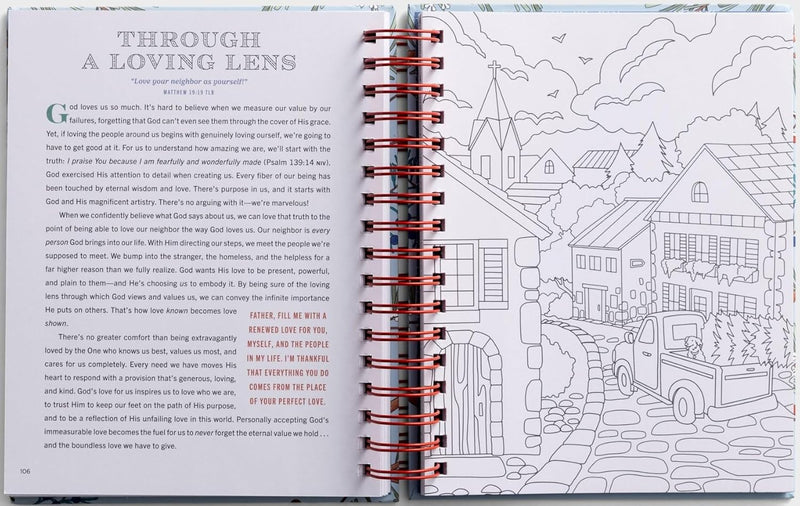 THROUGH
A LOVING LENS
"Love your neighbor as yourself!"
MATTHEW 19:19 TLB
God loves us so much. It's hard to believe when we measure our value by our
failures, forgetting that God can't even see them through the cover of His grace.
Yet, if loving the people around us begins with genuinely loving ourself, we're going to
have to get good at it. For us to understand how amazing we are, we'll start with the
truth: I praise You because I am fearfully and wonderfully made (Psalm 139:14 NIV).
God exercised His attention to detail when creating us. Every fiber of our being has
been touched by eternal wisdom and love. There's purpose in us, and it starts with
God and His magnificent artistry. There's no arguing with it—we're marvelous!
When we confidently believe what God says about us, we can love that truth to the
point of being able to love our neighbor the way God loves us. Our neighbor is every
person God brings into our life. With Him directing our steps, we meet the people we're
supposed to meet. We bump into the stranger, the homeless, and the helpless for a
far higher reason than we fully realize. God wants His love to be present, powerful,
and plain to them—and He's choosing us to embody it. By being sure of the loving
lens through which God views and values us, we can convey the infinite importance
He puts on others. That's how love known becomes love
shown.
There's no greater comfort than being extravagantly
loved by the One who knows us best, values us most, and
cares for us completely. Every need we have moves His
heart to respond with a provision that's generous, loving,
and kind. God's love for us inspires us to love who we are,
to trust Him to keep our feet on the path of His purpose,
and to be a reflection of His unfailing love in this world. Personally accepting God's
immeasurable love becomes the fuel for us to never forget the eternal value we hold . . .
and the boundless love we have to give.
FATHER, FILL ME WITH A
RENEWED LOVE FOR YOU,
MYSELF, AND THE PEOPLE
IN MY LIFE. I'M THANKFUL
THAT EVERYTHING YOU DO
COMES FROM THE PLACE
OF YOUR PERFECT LOVE.
106